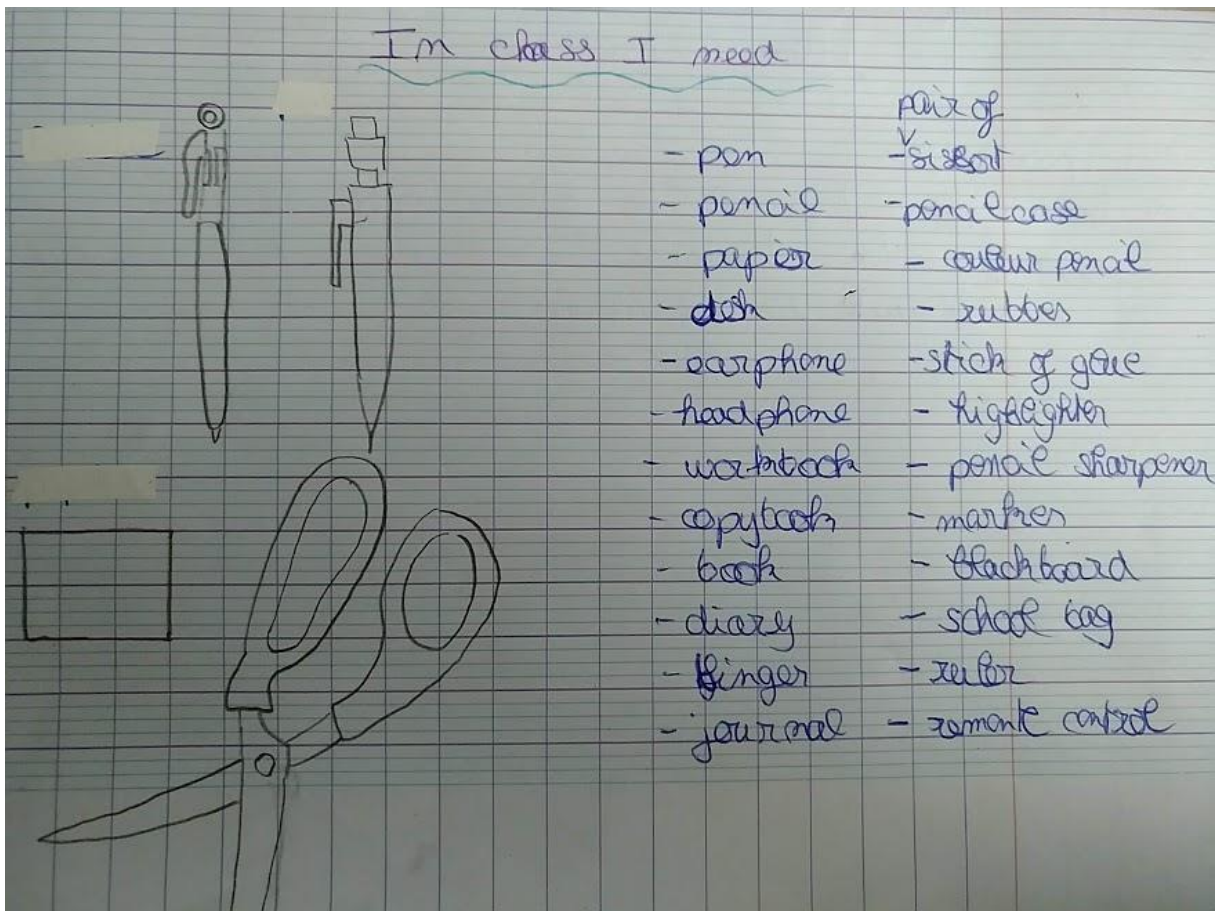 In class I need
- pen
- pencil
- papier
- desk
- earphone
- headphone
- workbook
- copybook
- book
- diary
- finger
- journal
pair of
- sissort
- pencilcase
- couleur pencil
- rubber
- stick of glue
- highlighter
- pencil sharpener
- marker
- blackboard
- school bag
- ruler
- remonte control